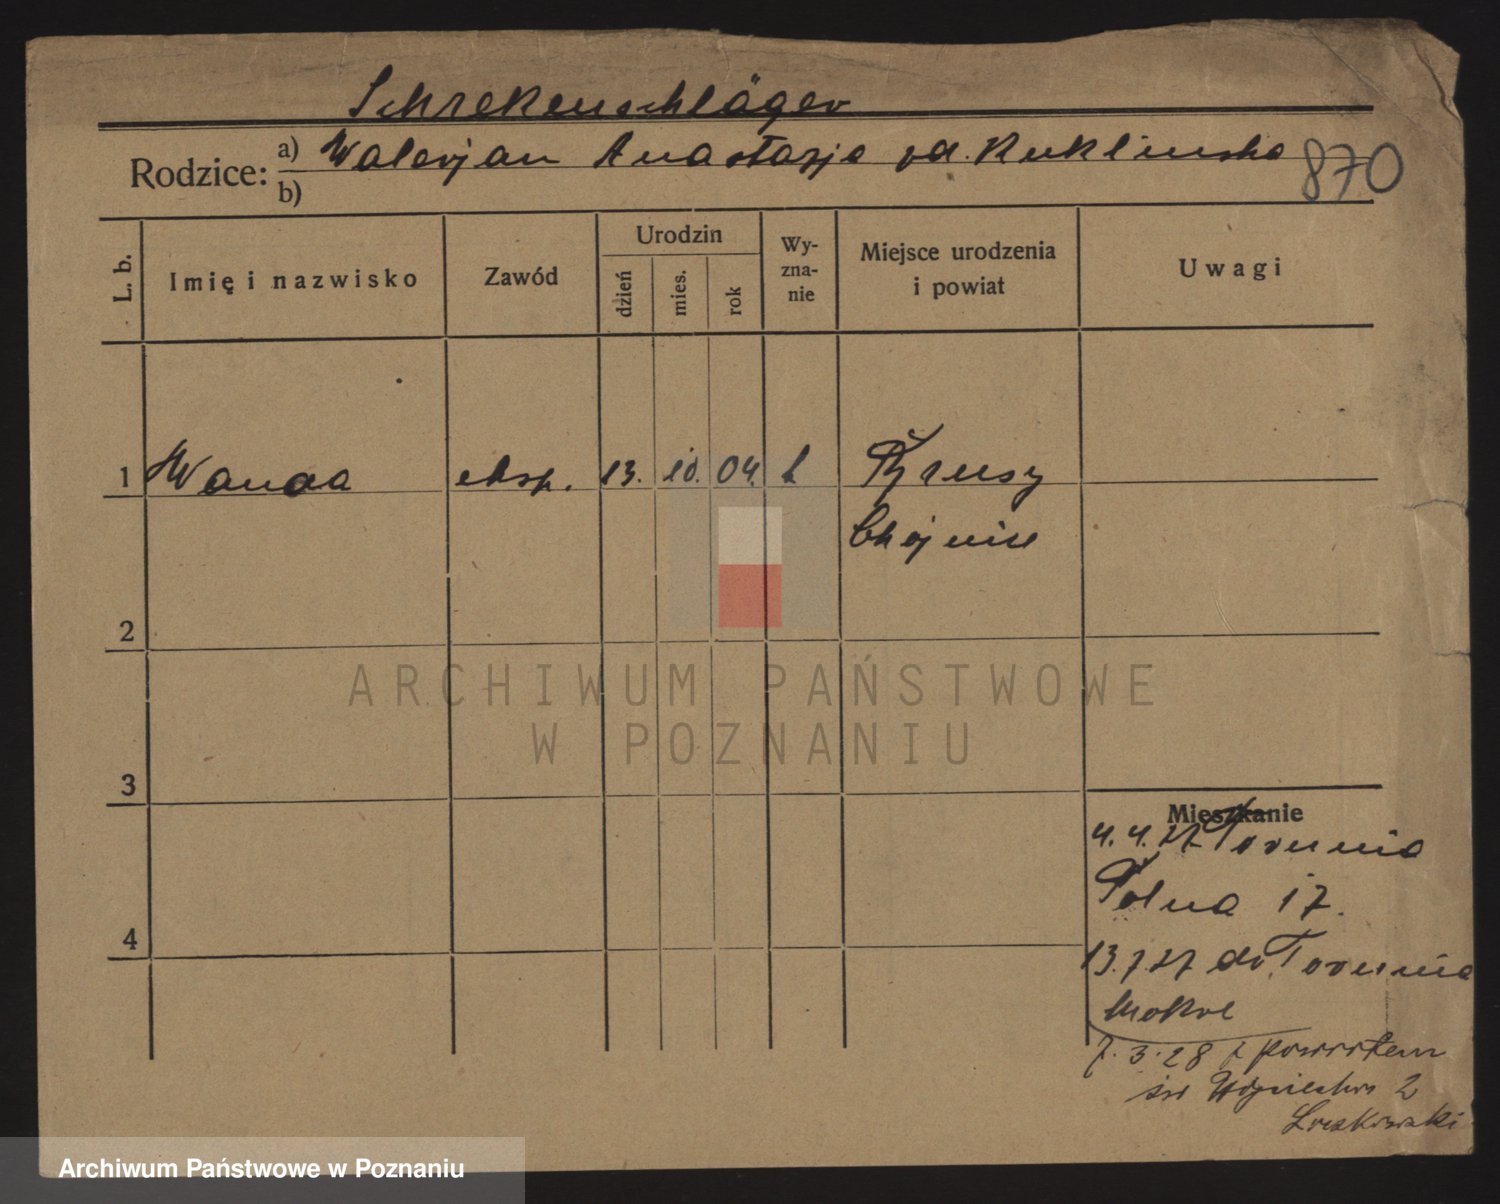 Schrekenschläger
Rodzice: a) Walerjan Anastazja zd. Kuklinska
b)
870
L. b. Imię i nazwisko Zawód Urodzin dzień mies. rok Wyznanie Miejsce urodzenia i powiat Uwagi
1 Wanda eksp. 13. 10. 04. k
Chojnice
2
3
4
Mieszkanie
4. 4. 27 z Torunia
Polna 17.
13. 7 27 do Torunia
Mokre
7. 3. 28 z powrotem
św Wojciecha 2
ARCHIWUM PAŃSTWOWE
W POZNANIU
Archiwum Państwowe w Poznaniu